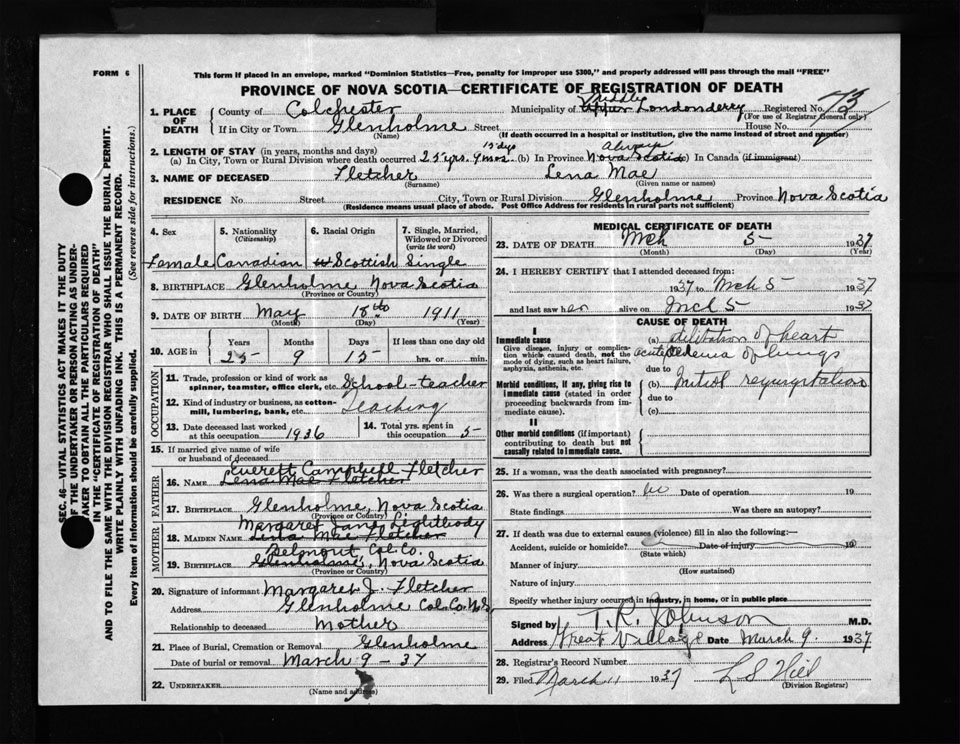 FORM 6
This form if placed in an envelope, marked "Dominion Statistics—Free, penalty for improper use $300," and properly addressed will pass through the mail "FREE"
PROVINCE OF NOVA SCOTIA—CERTIFICATE OF REGISTRATION OF DEATH
1. PLACE OF DEATH County of Colchester Municipality of Middle Upper Londonderry Registered No. 73
(For use of Registrar General only)
If in City or Town Glenholme Street House No.
(Name) (If death occurred in a hospital or institution, give the name instead of street and number)
2. LENGTH OF STAY (in years, months and days) 15 dys always
(a) In City, Town or Rural Division where death occurred 25 yrs. 9 mos. (b) In Province Nova Scotia In Canada (if immigrant)
3. NAME OF DECEASED Fletcher Lena Mae
(Surname) (Given name or names)
RESIDENCE No. Street City, Town or Rural Division Glenholme Province Nova Scotia
(Residence means usual place of abode. Post Office Address for residents in rural parts not sufficient)
4. Sex 5. Nationality (Citizenship) 6. Racial Origin 7. Single, Married, Widowed or Divorced (write the word)
Female Canadian Scottish Single
8. BIRTHPLACE Glenholme Nova Scotia
(Province or Country)
9. DATE OF BIRTH May 18th 1911
(Month) (Day) (Year)
10. AGE in Years Months Days If less than one day old
25 9 15 hrs. or min.
OCCUPATION
11. Trade, profession or kind of work as spinner, teamster, office clerk, etc. School-teacher
12. Kind of industry or business, as cotton-mill, lumbering, bank, etc. Teaching
13. Date deceased last worked at this occupation 1936 14. Total yrs. spent in this occupation 5
15. If married give name of wife or husband of deceased
FATHER
Everett Campbell Fletcher
16. NAME Lena Mae Fletcher
17. BIRTHPLACE Glenholme, Nova Scotia
(Province or Country)
MOTHER
Margaret Jane Lightbody
18. MAIDEN NAME Lena Mae Fletcher
Belmont Col. Co.
19. BIRTHPLACE Glenholme, Nova Scotia
(Province or Country)
20. Signature of informant Margaret J. Fletcher
Address Glenholme Col. Co. N.S.
Relationship to deceased Mother
21. Place of Burial, Cremation or Removal Glenholme
Date of burial or removal March 9 - 37
22. UNDERTAKER
(Name and address)
MEDICAL CERTIFICATE OF DEATH
23. DATE OF DEATH Mch 5 1937
(Month) (Day) (Year)
24. I HEREBY CERTIFY that I attended deceased from:
1937 to Mch 5 1937
and last saw her alive on Mch 5 1937
CAUSE OF DEATH
I
Immediate cause
Give disease, injury, or complication which caused death, not the mode of dying, such as heart failure, asphyxia, asthenia, etc.
(a) dilitation of heart
acute Oedema of lungs
due to
Morbid conditions, if any, giving rise to immediate cause (stated in order proceeding backwards from immediate cause).
(b) Mitral regurgitation
due to
(c)
II
Other morbid conditions (if important) contributing to death but not causally related to immediate cause.
25. If a woman, was the death associated with pregnancy?
26. Was there a surgical operation? no Date of operation 19
State findings Was there an autopsy?
27. If death was due to external causes (violence) fill in also the following:
Accident, suicide or homicide? Date of injury 19
(State which)
Manner of injury
(How sustained)
Nature of injury
Specify whether injury occurred in industry, in home, or in public place
Signed by T. R. Johnson M.D.
Address Great Village Date March 9. 1937
28. Registrar's Record Number
29. Filed March 11 1937 L S Hill
(Division Registrar)
SEC. 46—VITAL STATISTICS ACT MAKES IT THE DUTY
OF THE UNDERTAKER OR PERSON ACTING AS UNDER-
TAKER TO OBTAIN ALL THE PARTICULARS REQUIRED
IN THE "CERTIFICATE OF REGISTRATION OF DEATH"
AND TO FILE THE SAME WITH THE DIVISION REGISTRAR WHO SHALL ISSUE THE BURIAL PERMIT.
WRITE PLAINLY WITH UNFADING INK. THIS IS A PERMANENT RECORD.
Every item of information should be carefully supplied. (See reverse side for instructions.)